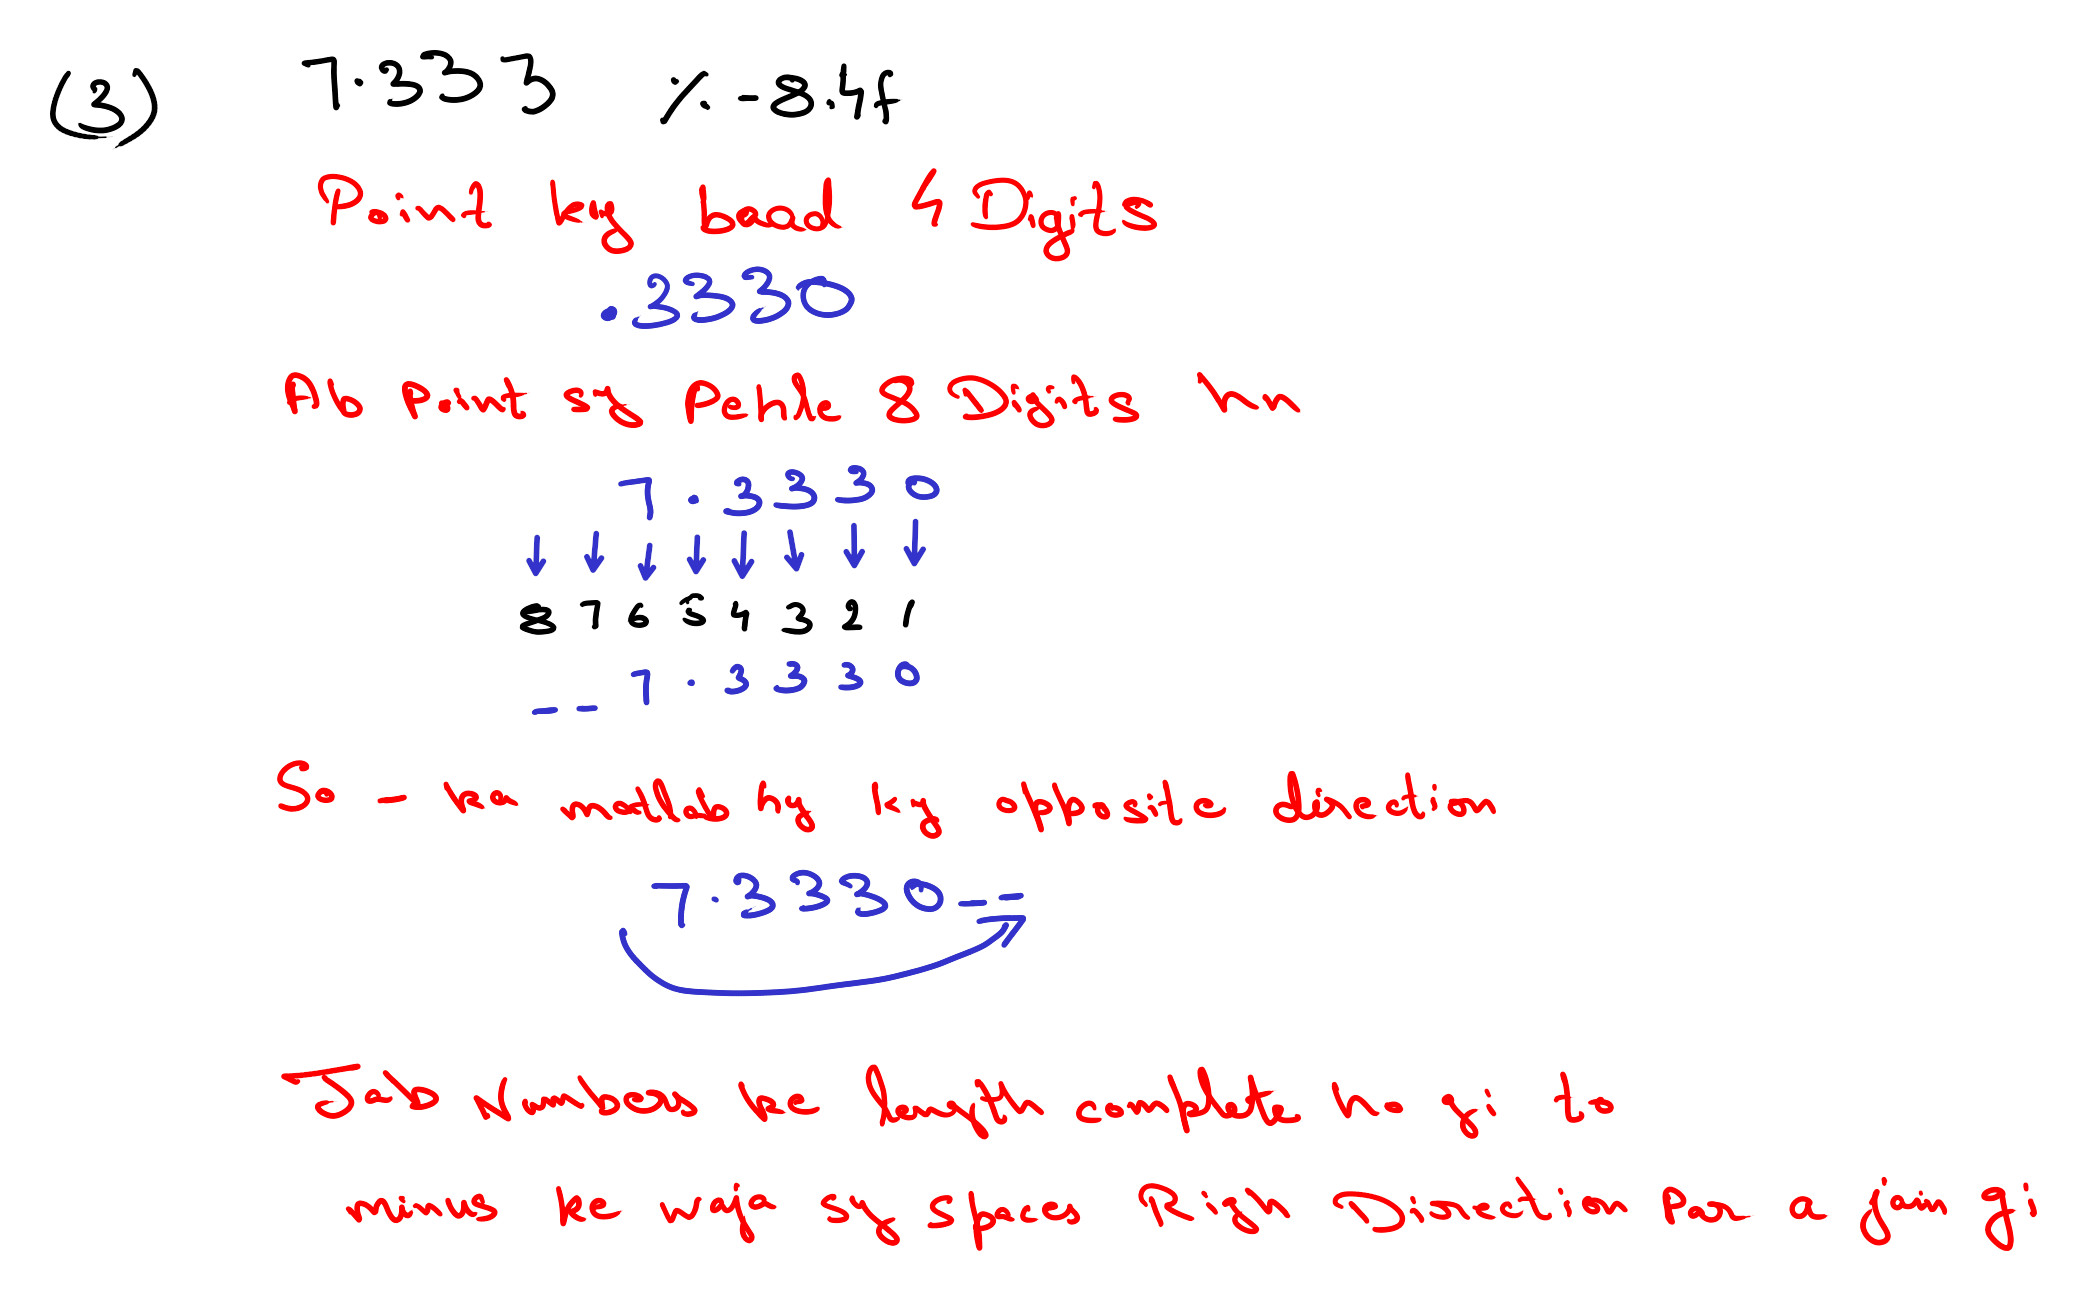 (3) 7.333 %-8.4f
Point ky baad 4 Digits
.3330
Ab Point sy Pehle 8 Digits hn
7.3330
↓ ↓ ↓ ↓ ↓ ↓ ↓ ↓
8 7 6 5 4 3 2 1
_ _ 7.3330
So - ka matlab hy ky opposite direction
7.3330 _ _
Jab Numbers ke length complete ho gi to
minus ke waja sy spaces Righ Direction Par a jain gi